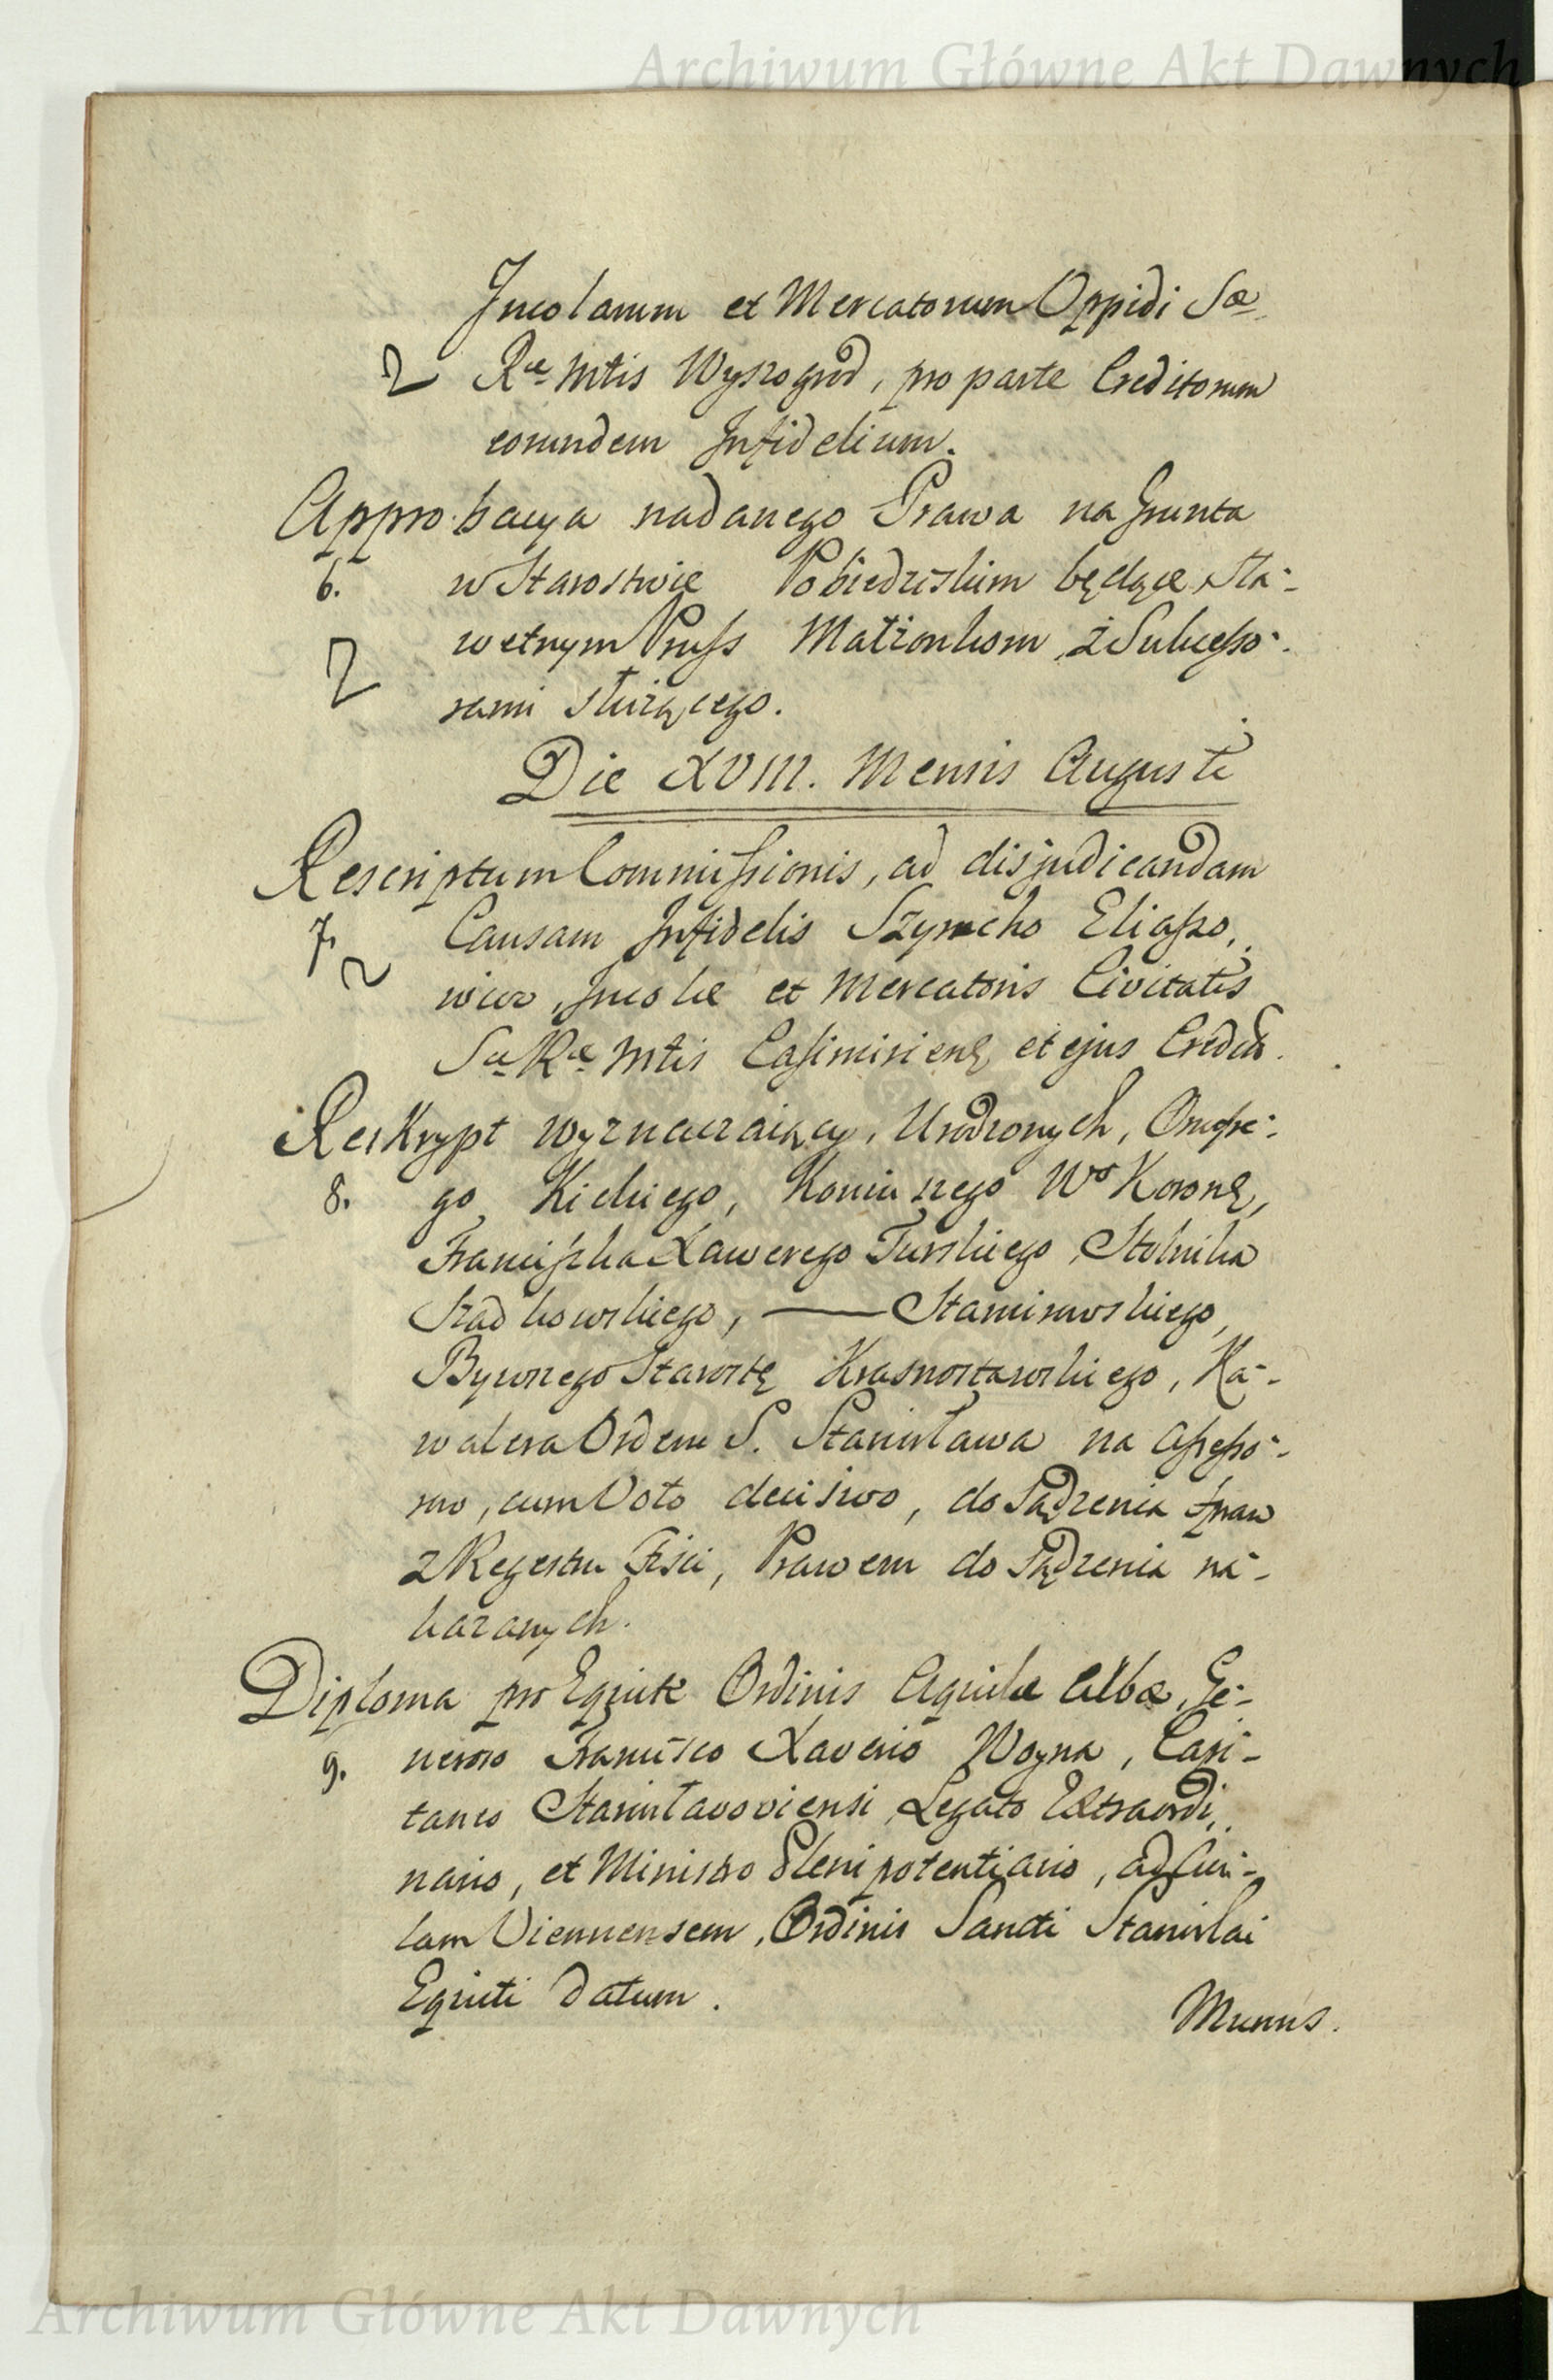 Archiwum Główne Akt Dawnych
Incolarum et Mercatorum Oppidi Sæ
Ræ Mtis Wyszogrod, pro parte Creditorum
eorundem Infidelium.
Approbacya nadanego Prawa na Grunta
6. w Starostwie Pobiedziskim będące Sła-
wetnym Pruss Małżonkom, z Sukcesso-
rami służącego.
Die XVIII. Mensis Augusti
Rescriptum Commissionis, ad disjudicandam
7. Causam Infidelis Szymcho Eliaszo,
wicz, Incolæ et Mercatoris Civitatis
Sæ Ræ Mtis Casimirien, et ejus Credit.
Reskrypt wyznaczaiący, Urodzonych, Onufre-
8. go Kickiego, Koniuszego Wo Koronę,
Franciszka Xawerego Turskiego, Stolnika
Szadkowskiego, —
Bywszego Starostę Krasnostawskiego, Ka-
walera Orderu S. Stanisława na Assesso-
row, cum Voto decisivo, do Sądzenia spraw
z Regestru Fisci, Prawem do Sądzenia na-
kazanych.
Diploma pro Equite Ordinis Aquilæ Albæ, Ge-
9. neroso Francisco Xaverio Woyna, Capi-
taneo Stanisłavoviensi, Legato Extraordi,
nario, et Ministro Plenipotentiario, ad Cur-
iam Viennensem, Ordinis Sancti Stanislai
Equiti datum.
Munus.
Archiwum Główne Akt Dawnych